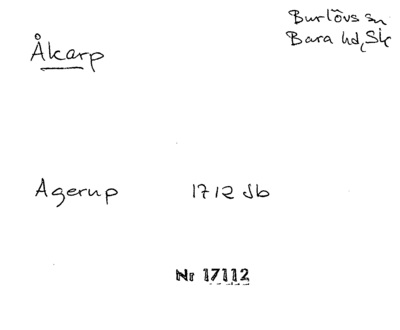 Åkarp
Burlövs sn
Bara hd, Sk
Agerup 1712 Jb
Nr 17112